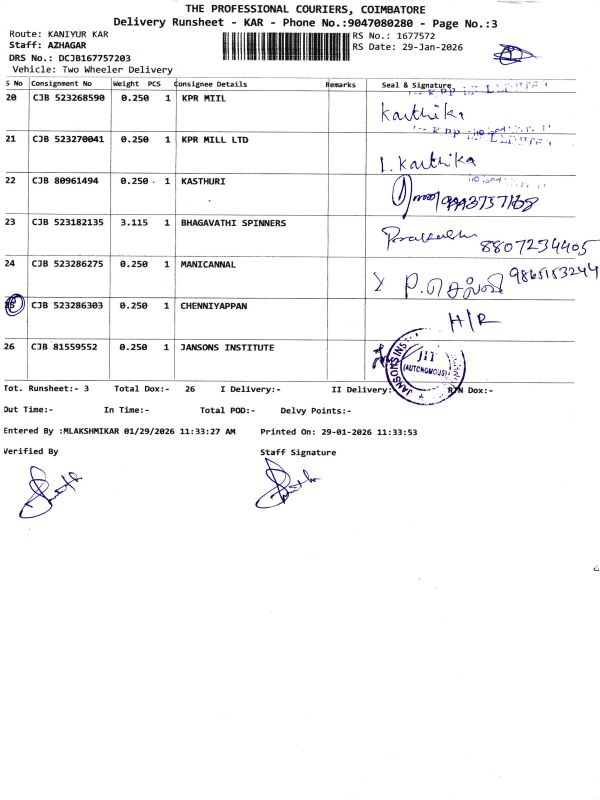 THE PROFESSIONAL COURIERS, COIMBATORE
Delivery Runsheet - KAR - Phone No.:9047080280 - Page No.:3
Route: KANIYUR KAR
RS No.: 1677572
Staff: AZHAGAR
RS Date: 29-Jan-2026
DRS No.: DCJB167757203
Vehicle: Two Wheeler Delivery
S No Consignment No Weight PCS Consignee Details Remarks Seal & Signature
20 CJB 523268590 0.250 1 KPR MIIL Karthika
21 CJB 523270041 0.250 1 KPR MILL LTD I. Karthika
22 CJB 80961494 0.250 1 KASTHURI
23 CJB 523182135 3.115 1 BHAGAVATHI SPINNERS 8807234405
24 CJB 523286275 0.250 1 MANICANNAL P. செல்வி 9865153244
25 CJB 523286303 0.250 1 CHENNIYAPPAN H/R
26 CJB 81559552 0.250 1 JANSONS INSTITUTE JIT (AUTONOMOUS)
Tot. Runsheet:- 3 Total Dox:- 26 I Delivery:- II Delivery:- RTN Dox:-
Out Time:- In Time:- Total POD:- Delvy Points:-
Entered By :MLAKSHMIKAR 01/29/2026 11:33:27 AM Printed On: 29-01-2026 11:33:53
Verified By Staff Signature